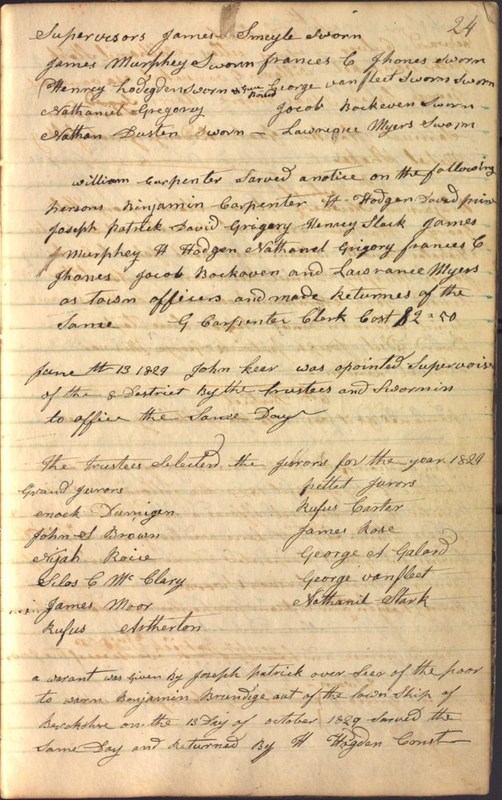 24
Supervisors James Smeyle Sworn
James Murphey Sworn frances C Jhones sworn
Henrey hodegden sworn George vanfleet Sworns Sworn
Nathaniel Gregory Jacob Bockoven Sworn
Nathan Dusten Sworn - Lawrence Myers Sworn
William Carpenter Sarved a notice on the following
persons Binjamin Carpenter H Hodgen David
Joseph Patrick David Grigery Henery Slack James
Murphey H Hodgen Nathanel Grigory frances C
Jhones Jacob Bockoven and Lawrance Myers
as town officers and made Returnes of the
Same G Carpenter Clerk Cost $2=50
June th 13 1829 John keer was apointed Supervisor
of the 8 District By the trustees and Swornin
to office the Same Day
The trustees Selected the jurors for the year 1829
Grand Jurors pettet Jurors
enock Dumigen Rufus Carter
John S Brown James Rose
Elijah Roice George A Galard
Silas C McClary George vanfleet
James Moor Nathanil Stark
Rufus Atherton
a warant was Given By Joseph Patrick over Seer of the poor
to warn Benjamin Brundige out of the town Ship of
Berkshire on the 13 Day of october 1829 Sarved the
Same Day and Returned By H Hogden Const